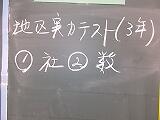 地区実力テスト(3年)
①社②数